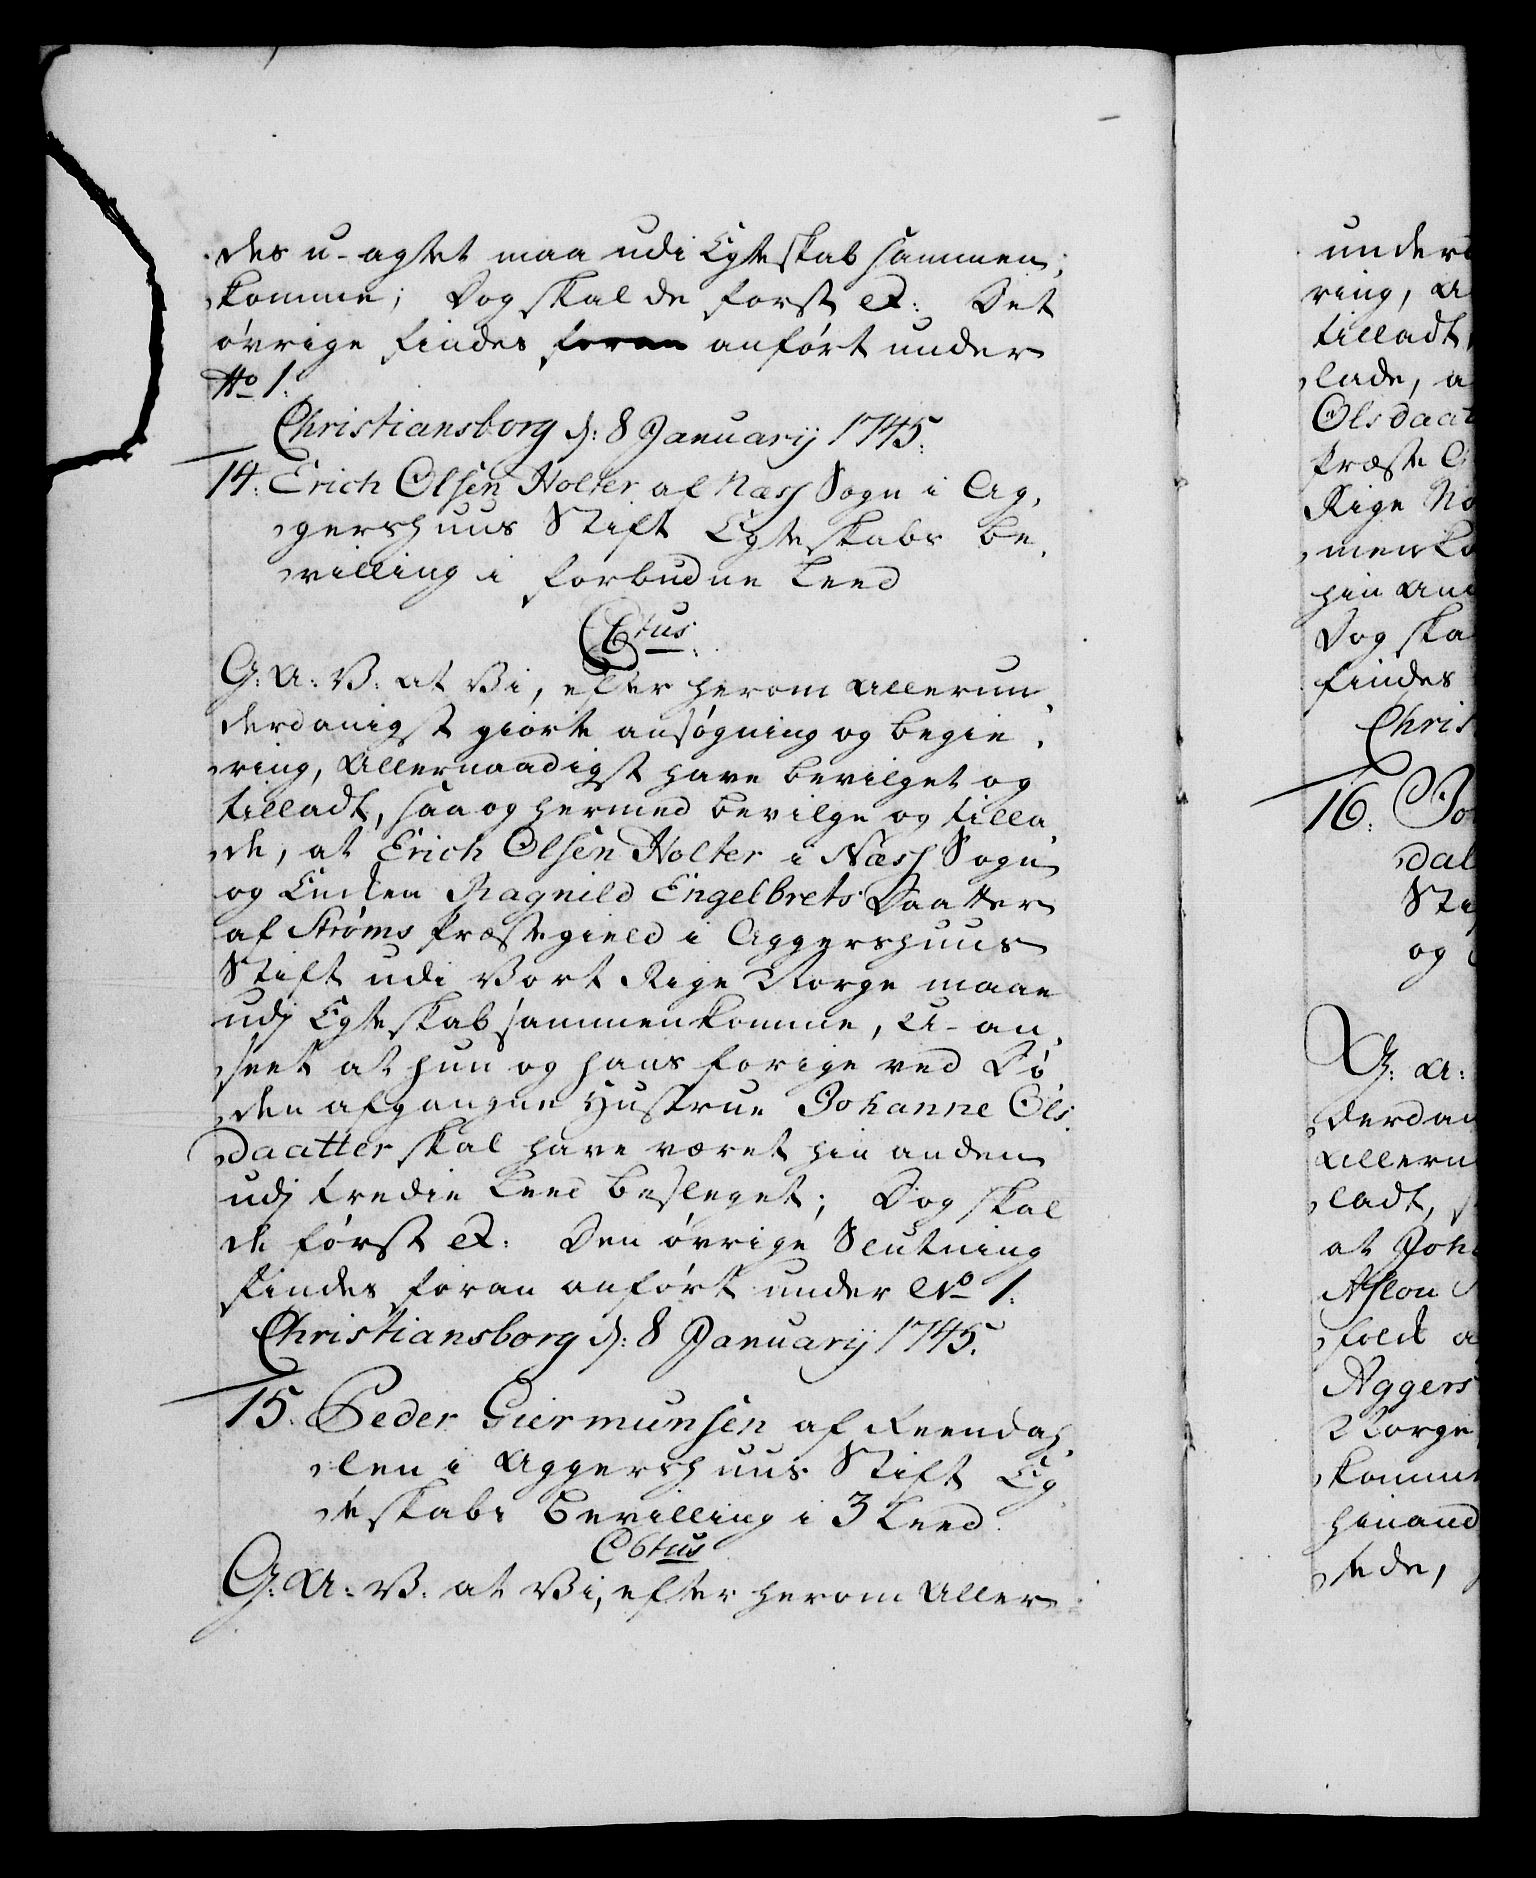 des u-agtet maa udi Egteskab sammen,
komme; Dog skal de först etc: Det
övrige findes foran anført under
No 1.
Christiansborg d: 8 Januarij 1745.
14. Erich Olsen Holter af Næss Sogn i Ag,
gershuus Stift Egteskabs Be,
villing i forbudne Leed
C6tus
G: A: V: at Vi, efter herom Allerun,
derdanigst giorte ansøgning og begie,
ring, Allernaadigst have bevilget og
tilladt, saa og hermed bevilge og tilla,
de, at Erich Olsen Holter i Næss Sogn
og Enken Ragnild Engelbrets Daatter
af Strøms Præstegield i Aggershuus
Stift udi Vort Rige Norge maae
udj Egteskab sammenkomme, U-an,
seet at hun og hans forige ved Dö
den afgangne Hustrue Johanne Ols,
Daatter skal have været hin anden
udj tredie Leed besleget; Dog skal
de först etc: Den övrige Slutning
findes foran anført under No 1.
Christiansborg d: 8 Januarij 1745.
15. Peder Giermunsen af Reendah,
len i Aggershuus Stift Eg,
teskabs Bevilling i 3 Leed.
C6tus
G: A: V: at Vi, efter herom Aller
under
ring, A
tilladt
lade, a
Olsdaat
Præste
Rige No
menko
hin And
Dog ska
findes
Chris
16. Jo
dal
Sti
og
G: A:
derdan
Allern
ladt, s
at Joh
Aslon
fold a
Aggers
Norge
komme
hinand
tede,